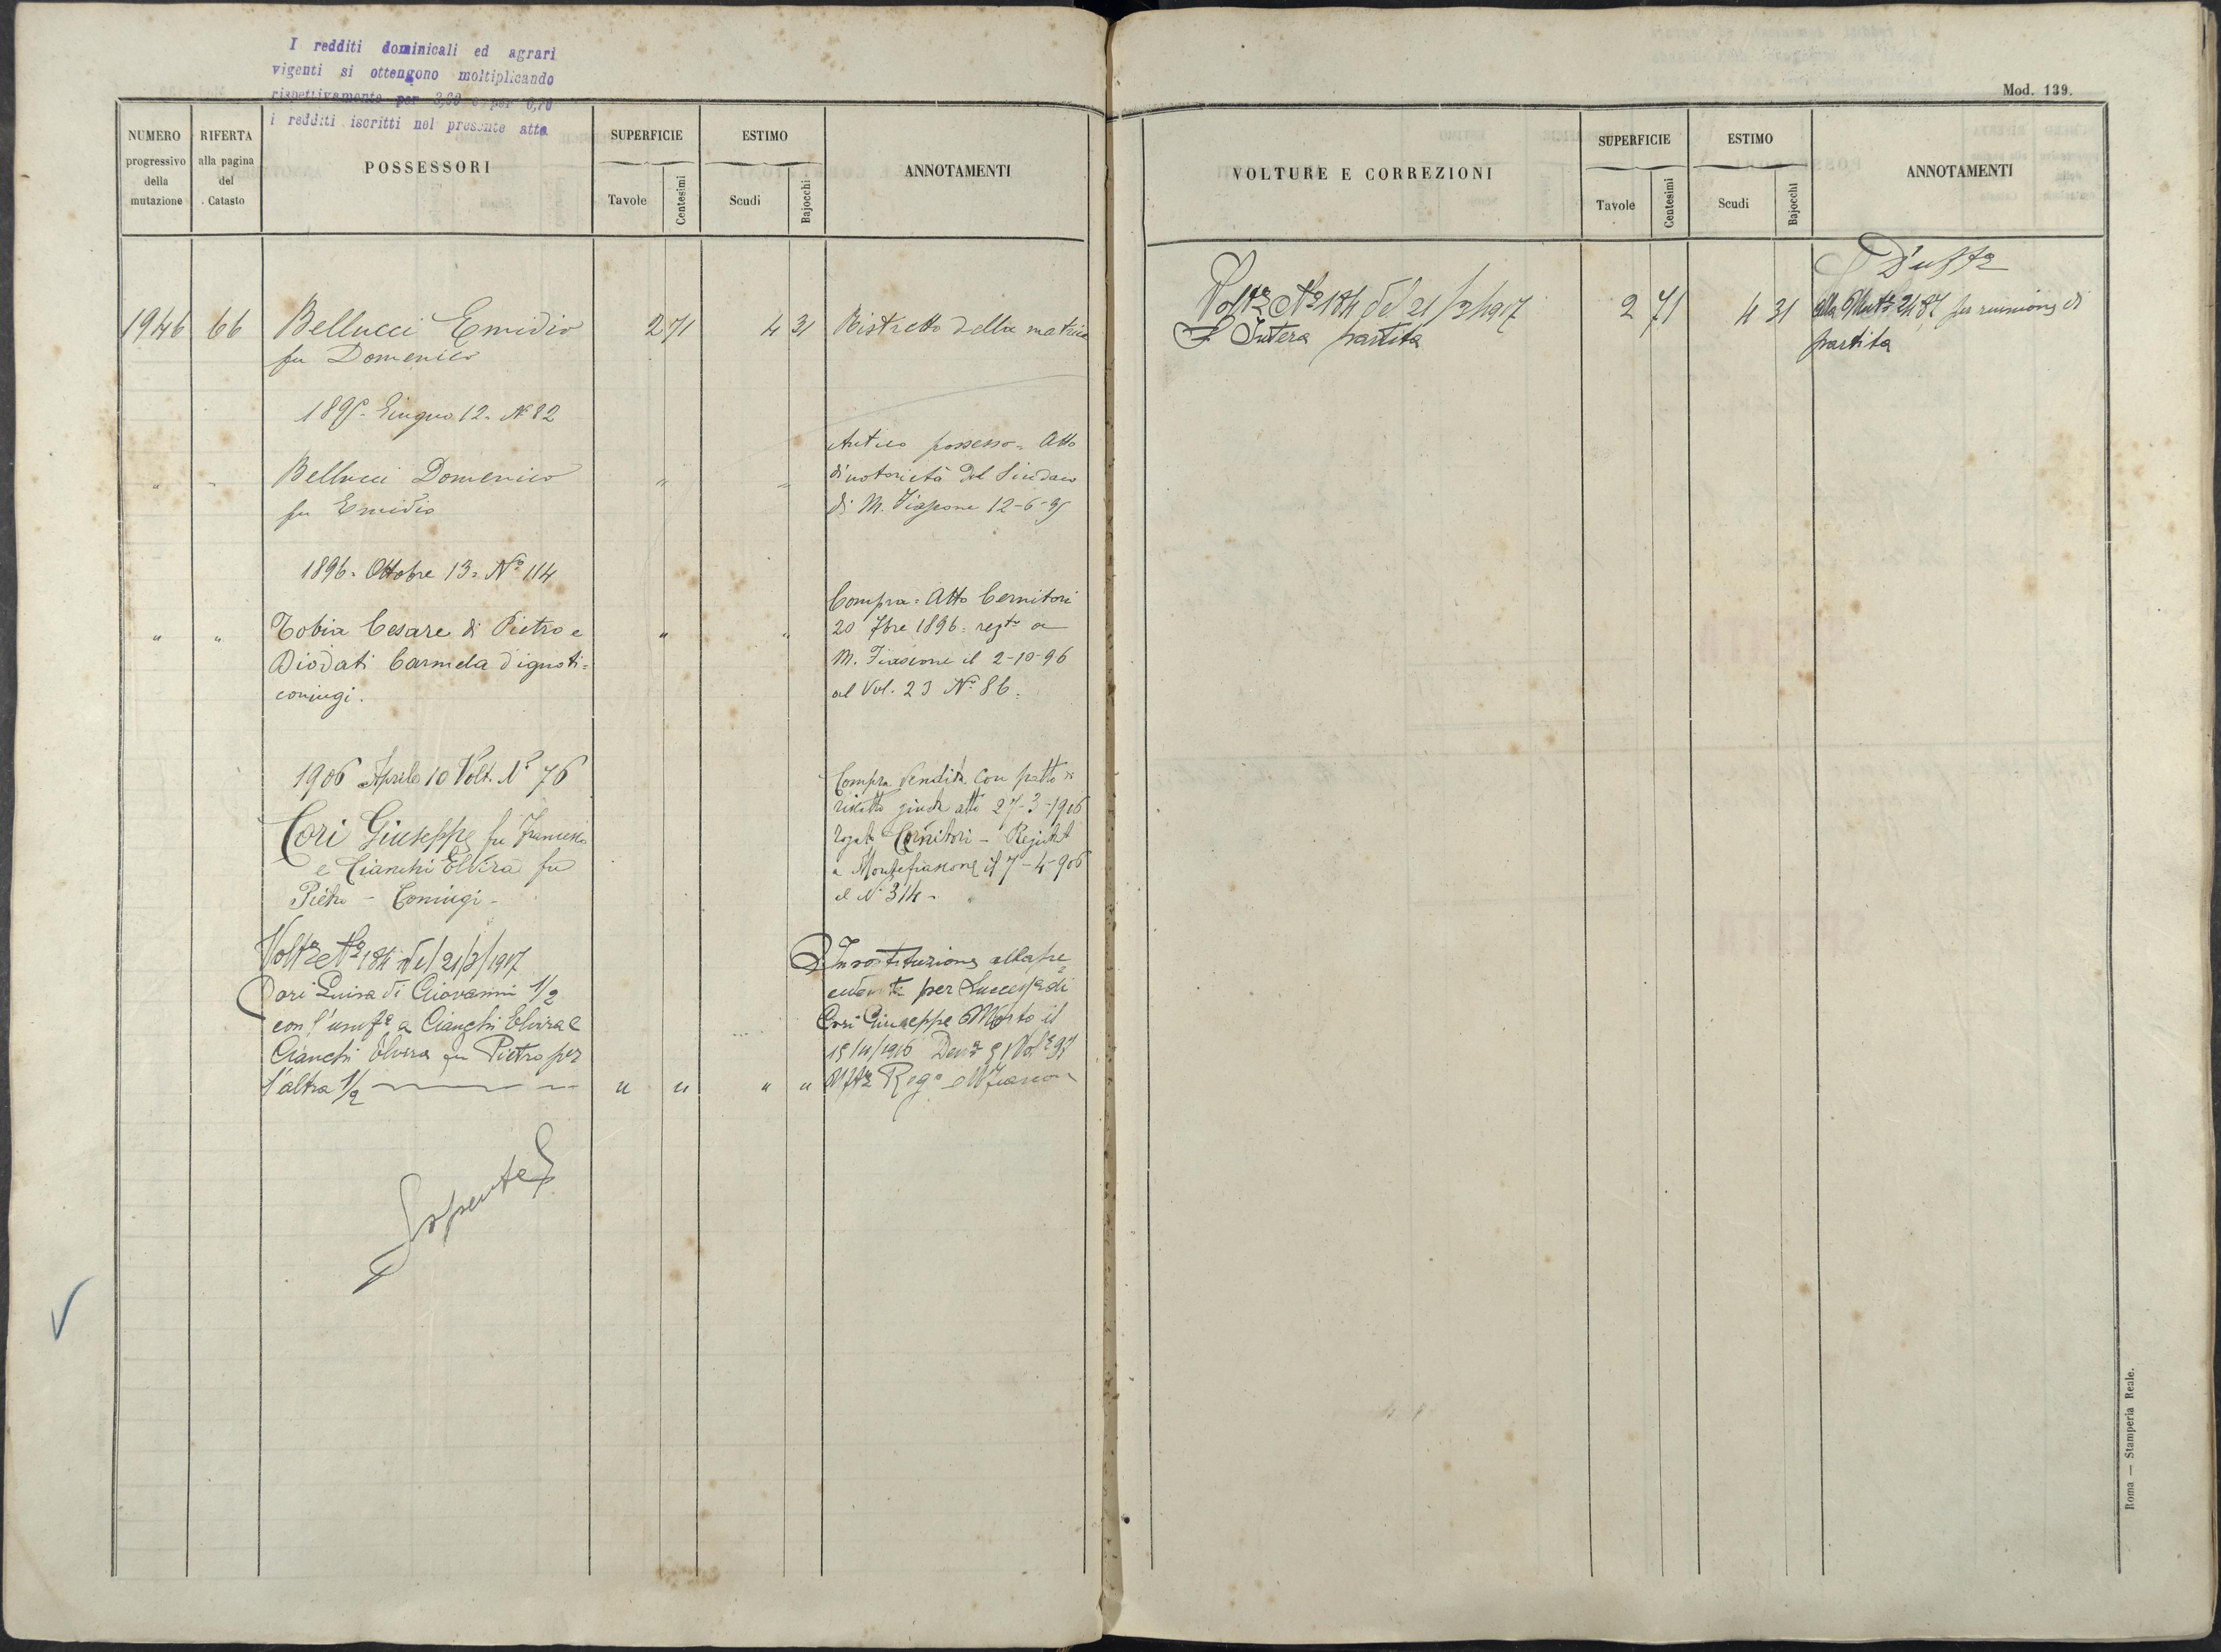 I redditi dominicali ed agrari
vigenti si ottengono moltiplicando
rispettivamente per e per
i redditi iscritti nel presente atto
NUMERO
progressivo
della
mutazione
RIFERTA
alla pagina
del
Catasto
POSSESSORI
SUPERFICIE
Tavole
Centesimi
ESTIMO
Scudi
Bajocchi
ANNOTAMENTI
1946 66 Bellucci Emidio 2 71 4 31 Ristretto della matrice
fu Domenico
1895 Giugno 12 = Nº 82
Antico possesso = Atto
" " Bellucci Domenico " " di notorietà del Sindaco
fu Emidio di M. Fiascone 12-6-95
1896 = Ottobre 13 = Nº 114
Compra = Atto Cernitori
" " Tobia Cesare di Pietro e " " 20 7bre 1896 = regto a
Diodati Carmela d'ignoti = M. Fiascone il 2-10-96
coniugi. al Vol. 23 Nº 86 =
1906 Aprile 10 Volt. Nº 76
Compra Vendita con patto di
riscatto giusta atto 27-3-1906
Cori Giuseppe fu Francesco
rogato Cernitori - Registrat
e Cianchi Elvira fu
a Montefiascone il 7-4-906
Pietro - Coniugi -
al Nº 314 -
Voltra Nº 184 del 21/3/1917
In sostituzione alla pre
Cori Luisa di Giovanni 1/2
cedente per Success di
con l'usufo a Cianchi Elvira e
Cori Giuseppe Morto il
Cianchi Elvira fu Pietro per
l'altra 1/2 " " " "
Reg
Mod. 139.
VOLTURE E CORREZIONI
SUPERFICIE
Tavole
Centesimi
ESTIMO
Scudi
Bajocchi
ANNOTAMENTI
Voltra Nº 184 del 21/3/1917 2 71 4 31 alla Muta 2487 per riunione di
L'Intera partita partita
Roma — Stamperia Reale.